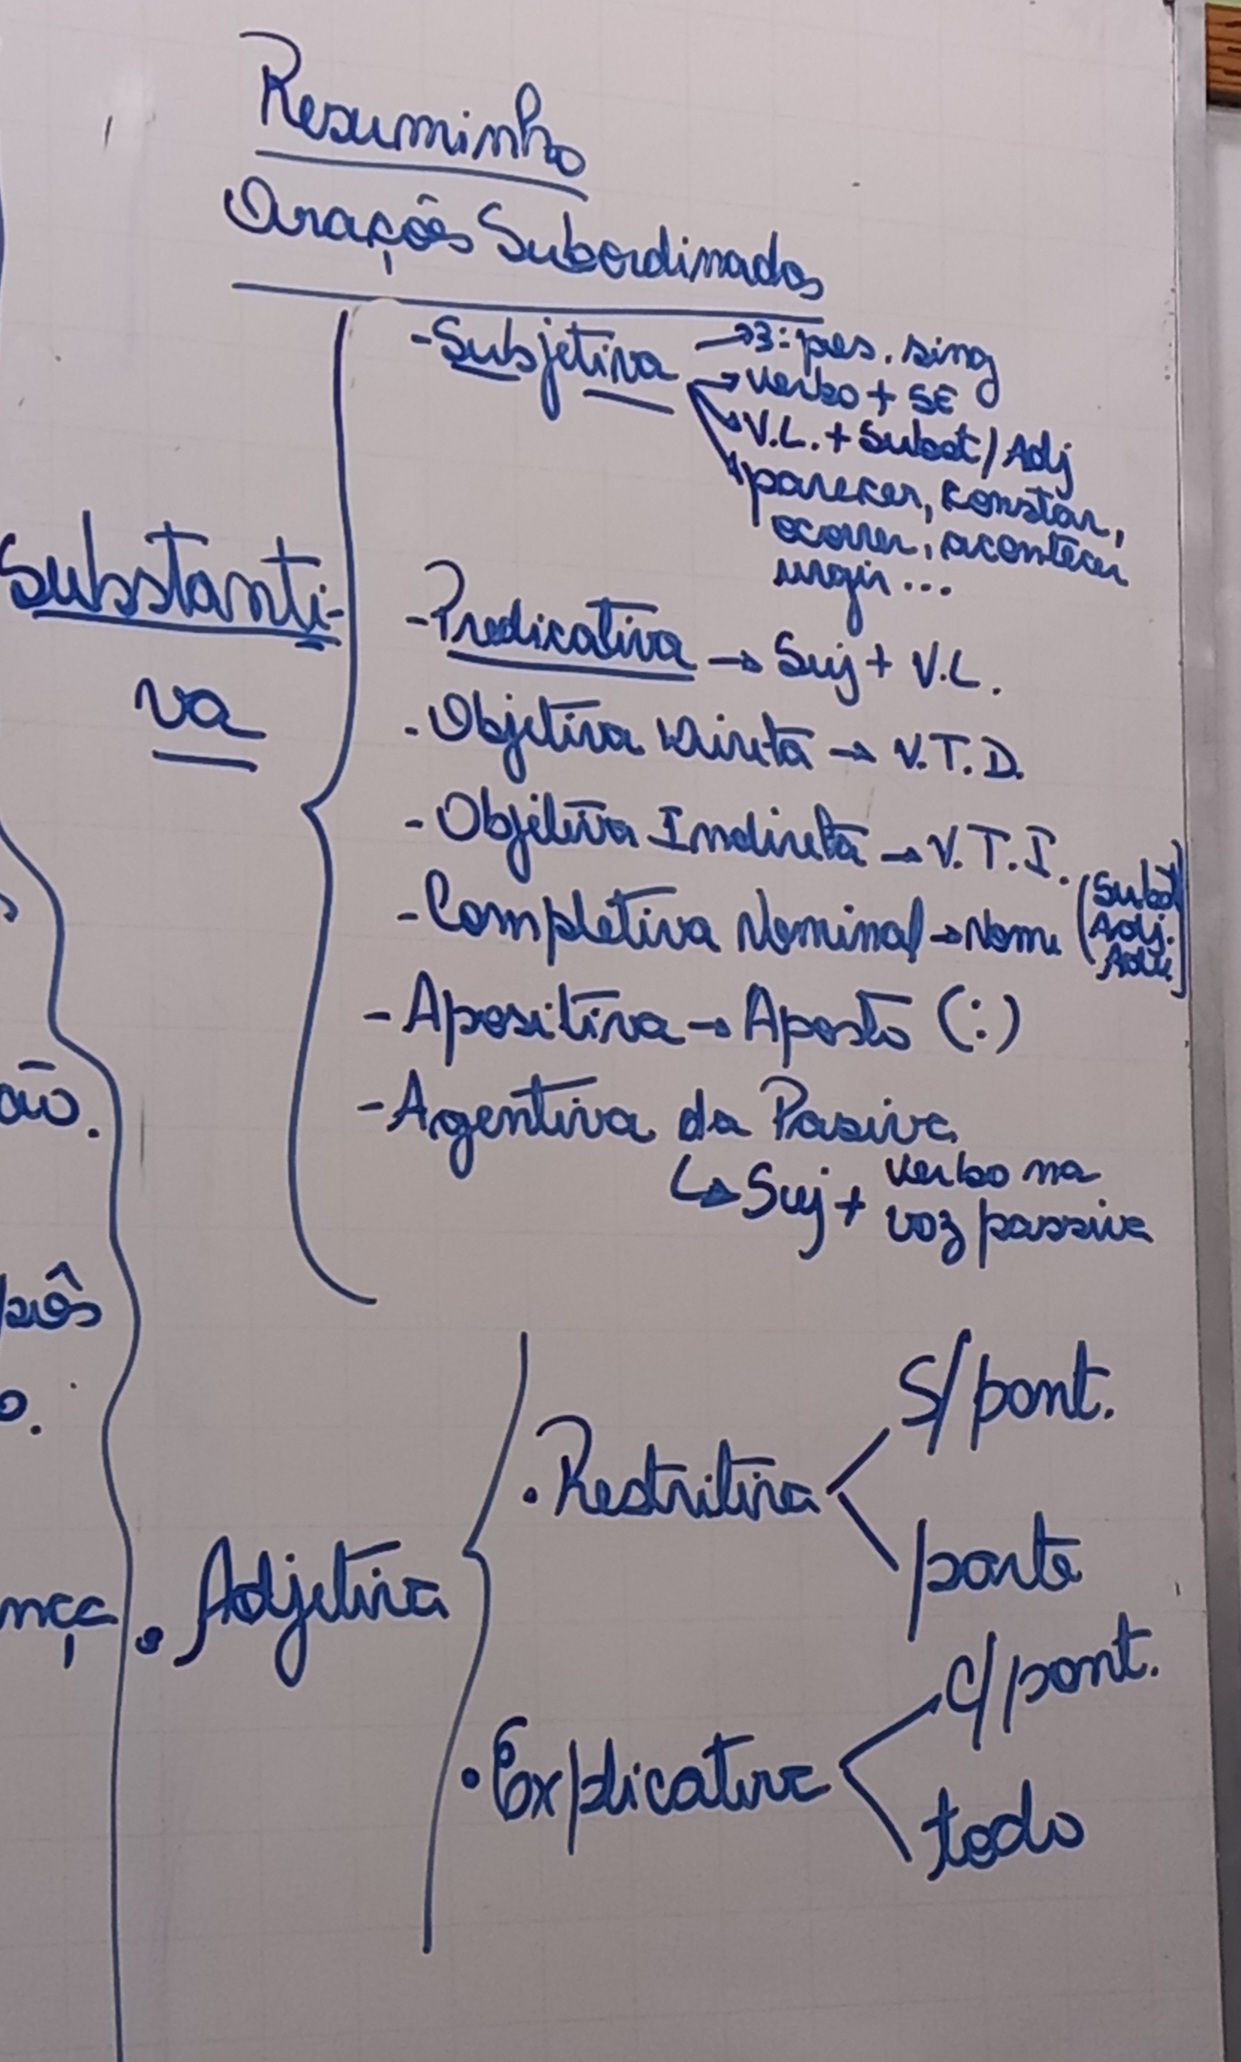 Resuminho
Orações Subordinadas
Substanti-
va
- Subjetiva → 3ª pes. sing
→ verbo + SE
→ V.L. + Subst/Adj
→ parecer, constar,
ocorrer, acontecer
urgir...
- Predicativa → Suj + V.L.
. Objetiva Direta → V.T.D.
- Objetiva Indireta → V.T.I.
- Completiva Nominal → Nome (Subst
Adj.
Adv.]
- Apositiva → Aposto (:)
- Agentiva da Passiva
↳ Suj + verbo na
voz passiva
• Adjetiva
. Restritiva
S/pont.
parte
• Explicativa
c/pont.
todo
ão.
o.
nça